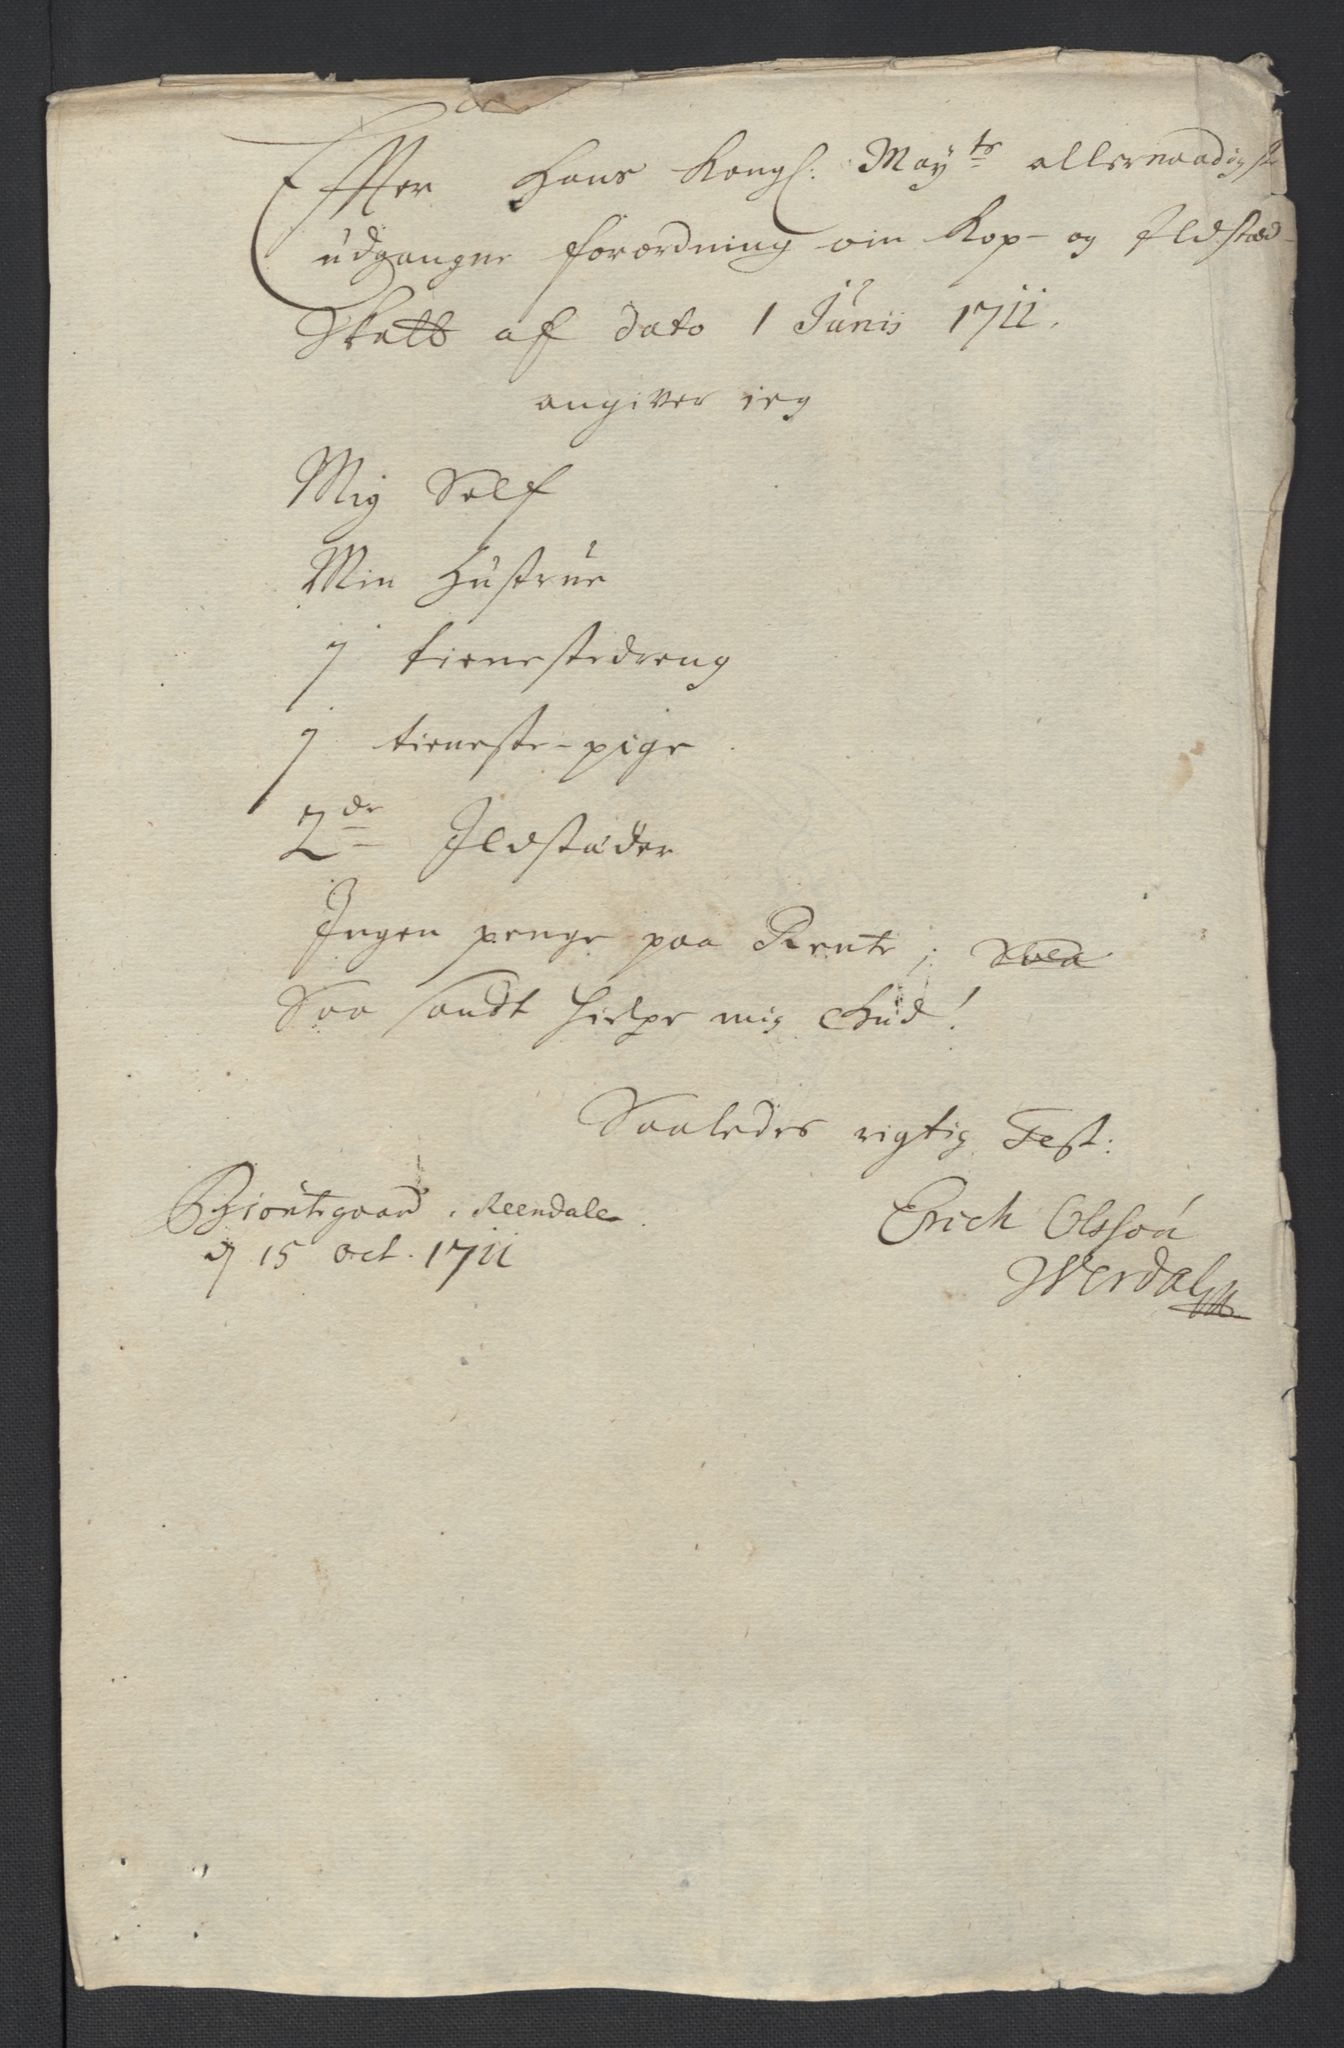 Effter Hans Kongl: May^ts allernaadigste
udgangne forordning om Kop- og Ildstæd-
Skatt af dato 1 Junij 1711.
angiver ieg
Mig Self
Min Hustrue
j tienestedreng
j tieneste-pige
2^de Ildstæder
Ingen penge paa Rente;
Saa sandt hielpe mig Gud!
Saaledes rigtig Test:
Reendale
d 15 Oct. 1711
Erich Olssøn
Werdal